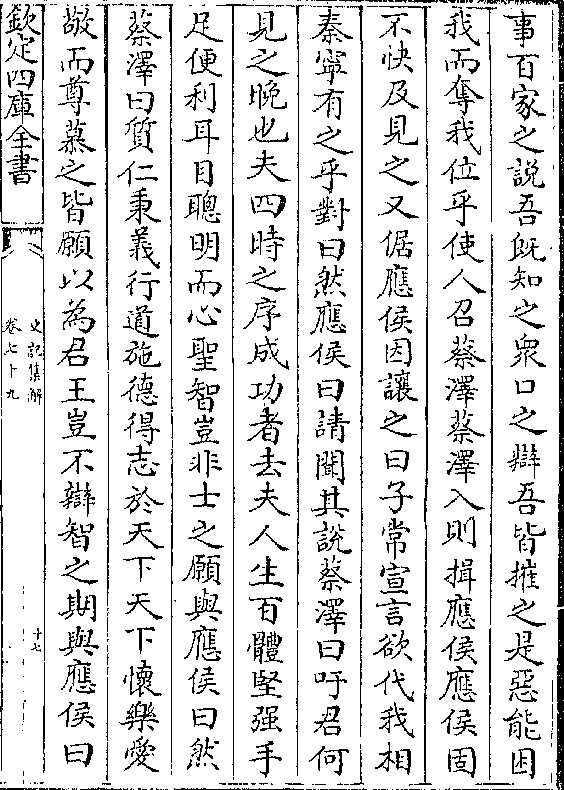 事百家之説吾既知之衆口之辯吾皆摧之是惡能困
我而奪我位乎使人召蔡澤蔡澤入則揖應侯應侯固
不快及見之又倨應侯因讓之曰子常宣言欲代我相
秦寜有之乎對曰然應侯曰請聞其說蔡澤曰吁君何
見之晚也夫四時之序成功者去夫人生百體堅强手
足便利耳目聰明而心聖智豈非士之願與應侯曰然
蔡澤曰質仁秉義行道施德得志於天下天下懷樂愛
敬而尊慕之皆願以為君王豈不辯智之期與應侯曰
欽定四庫全書
史記集解
卷七十九
十七